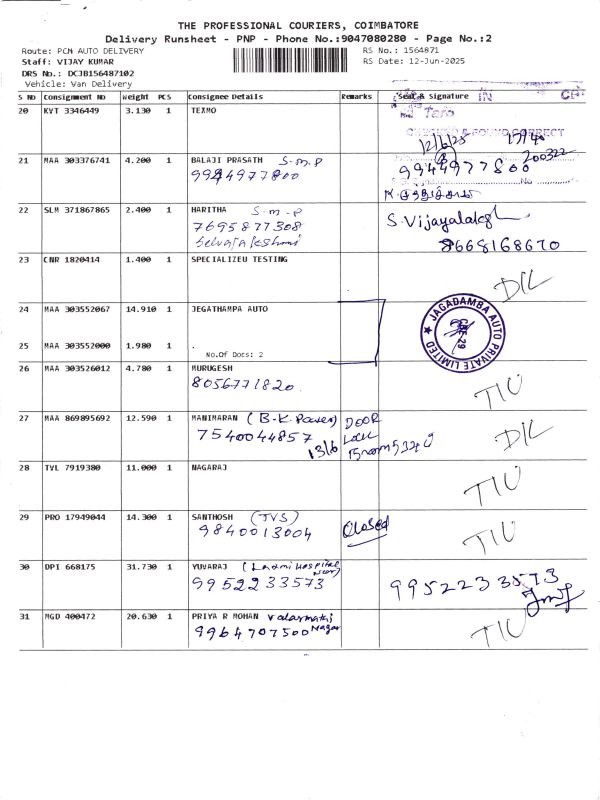 THE PROFESSIONAL COURIERS, COIMBATORE
Delivery Runsheet - PNP - Phone No.:9047080280 - Page No.:2
Route: PCN AUTO DELIVERY RS No.: 1564871
Staff: VIJAY KUMAR RS Date: 12-Jun-2025
DRS No.: DCJB156487102
Vehicle: Van Delivery
S No Consignment No Weight PCS Consignee Details Remarks Seal & signature
20 KVT 3346449 3.130 1 TEXMO
12/6/25 17/40
200322
21 MAA 303376741 4.200 1 BALAJI PRASATH S.m.p
9944977800 9944977800
22 SLM 371867865 2.400 1 HARITHA S.m.p
7695877308 S.Vijayalaksh
Selvarajalakshmi 8668168670
23 CNR 1820414 1.400 1 SPECIALIZEU TESTING
DIL
24 MAA 303552067 14.910 1 JEGATHAMPA AUTO
JAGADAMBA AUTO PRIVATE LIMITED
25 MAA 303552000 1.980 1 .
No.Of Docs: 2
26 MAA 303526012 4.780 1 MURUGESH
8056771820 TIU
27 MAA 869895692 12.590 1 MANIMARAN (B.K. DOOR
7540044857 Lock DIL
13/6
28 TVL 7919380 11.000 1 NAGARAJ
TIU
29 PRO 17949044 14.300 1 SANTHOSH (TVS)
9840013004 Closed TIU
30 DPI 668175 31.730 1 YUVARAJ (Laxmi Hospital
9952233573 9952233573
31 MGD 400472 20.630 1 PRIYA R MOHAN Valarmathi
9964707500 Nagar TIU